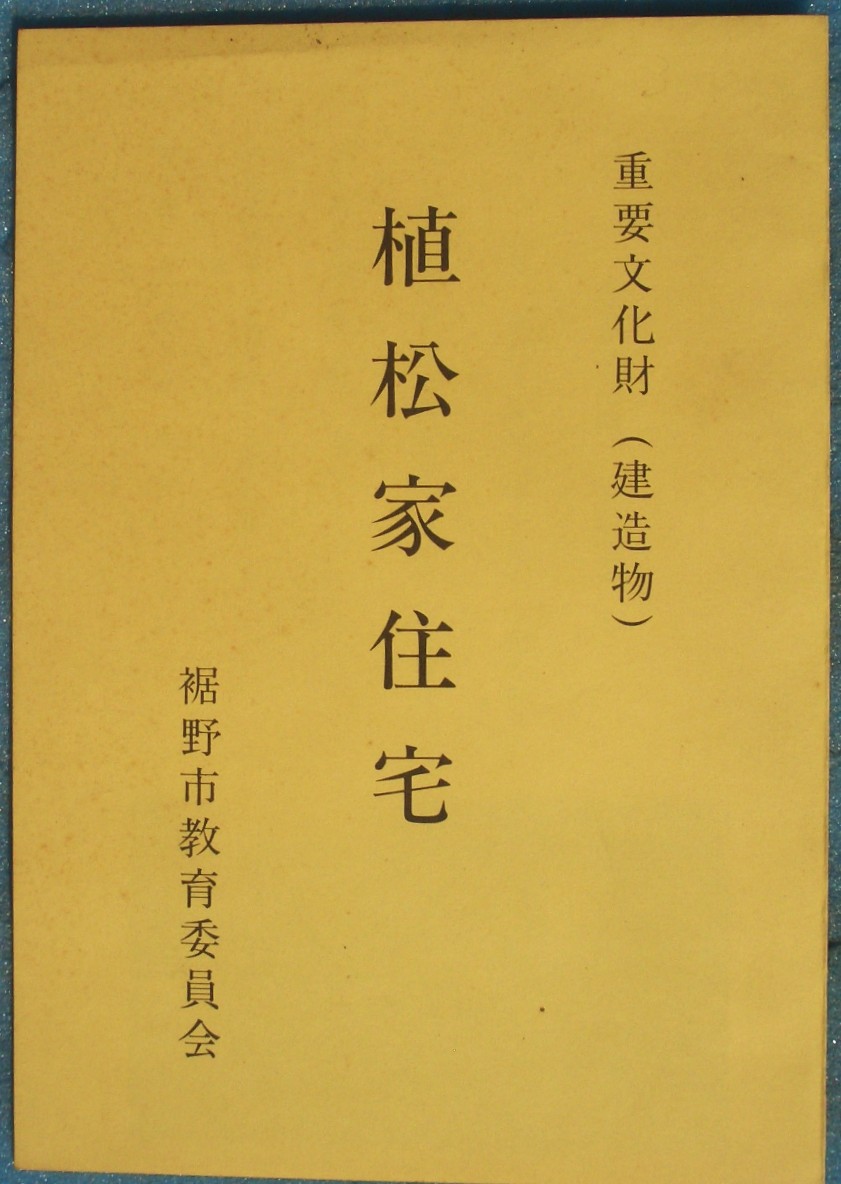 重要文化財（建造物）
植松家住宅
裾野市教育委員会